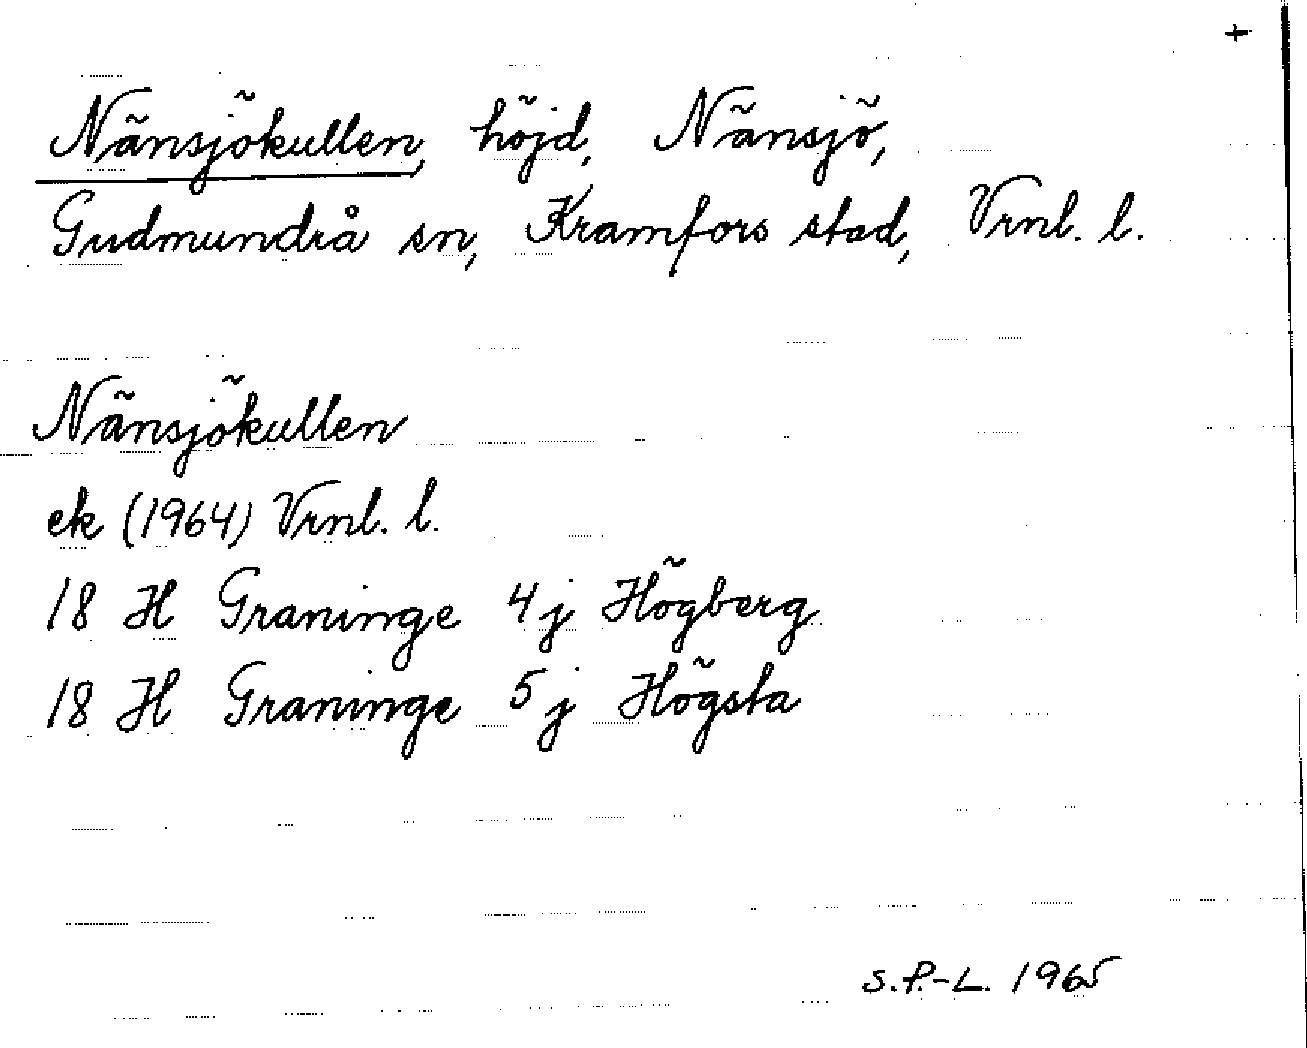 +
Nänsjökullen, höjd, Nänsjö,
Gudmundrå sn, Kramfors stad, Vrnl. l.
Nänsjökullen
ek (1964) Vrnl. l.
18 H Graninge 4 j Högberg
18 H Graninge 5 j Högsta
S.P.-L. 1965